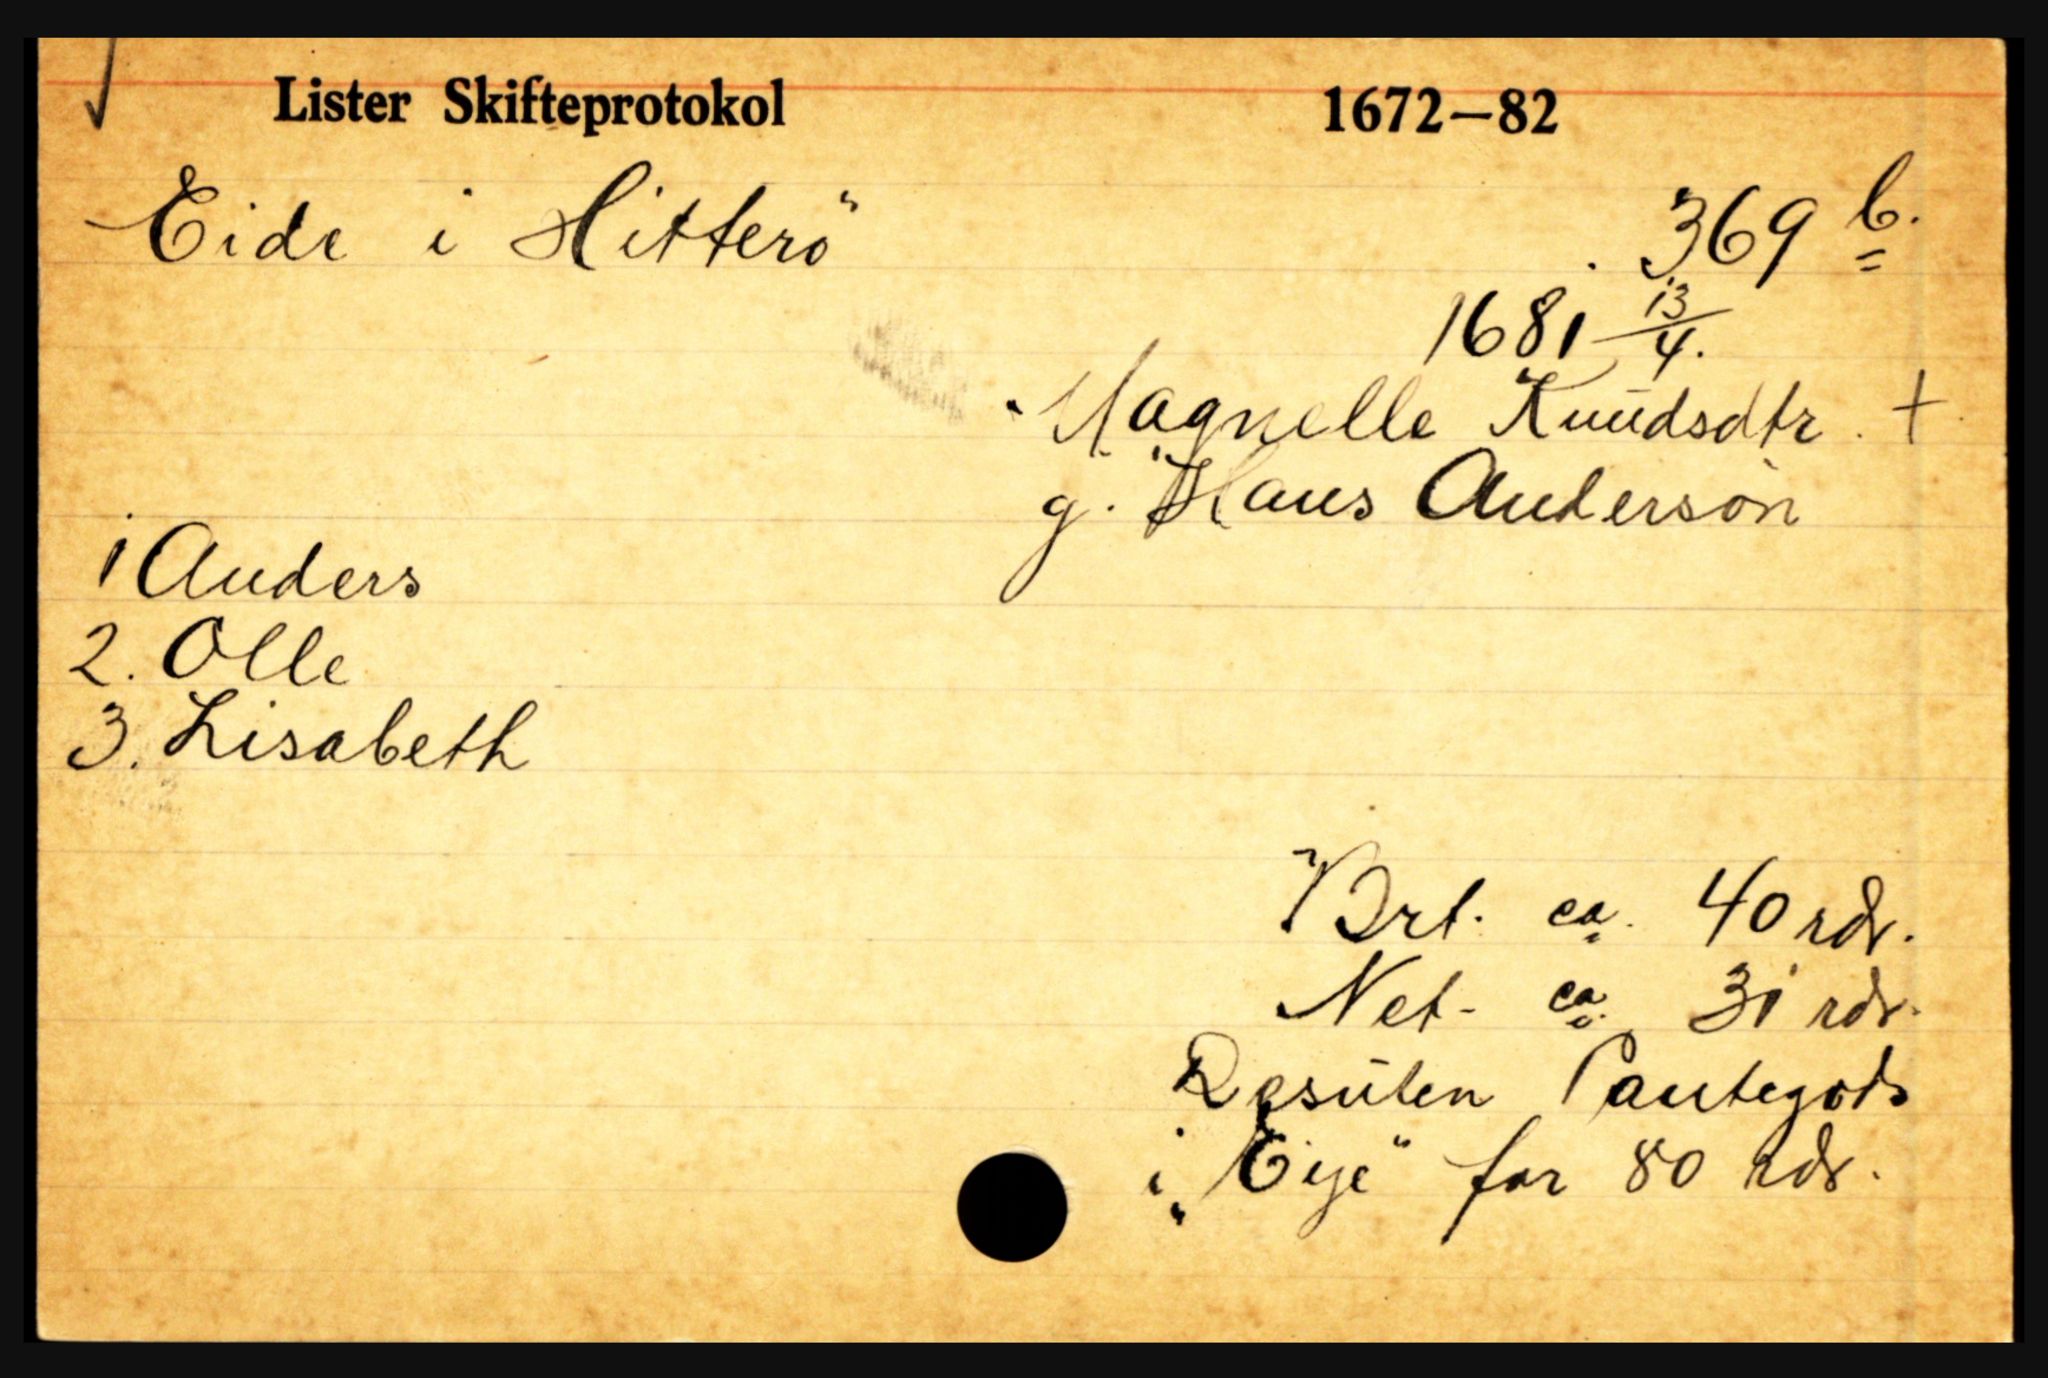 Lister Skifteprotokol 1672–82
Eide i Hitterö 369 b.
1681 13/4.
Magnelle Knudsdtr. +
g. Hans Anderson
1 Anders
2. Olle
3. Lisabeth
Brt. ca. 40 rdr.
Net- ca. 31 rdr.
Desuten Pantegods
i „Eye" for 80 rdr.